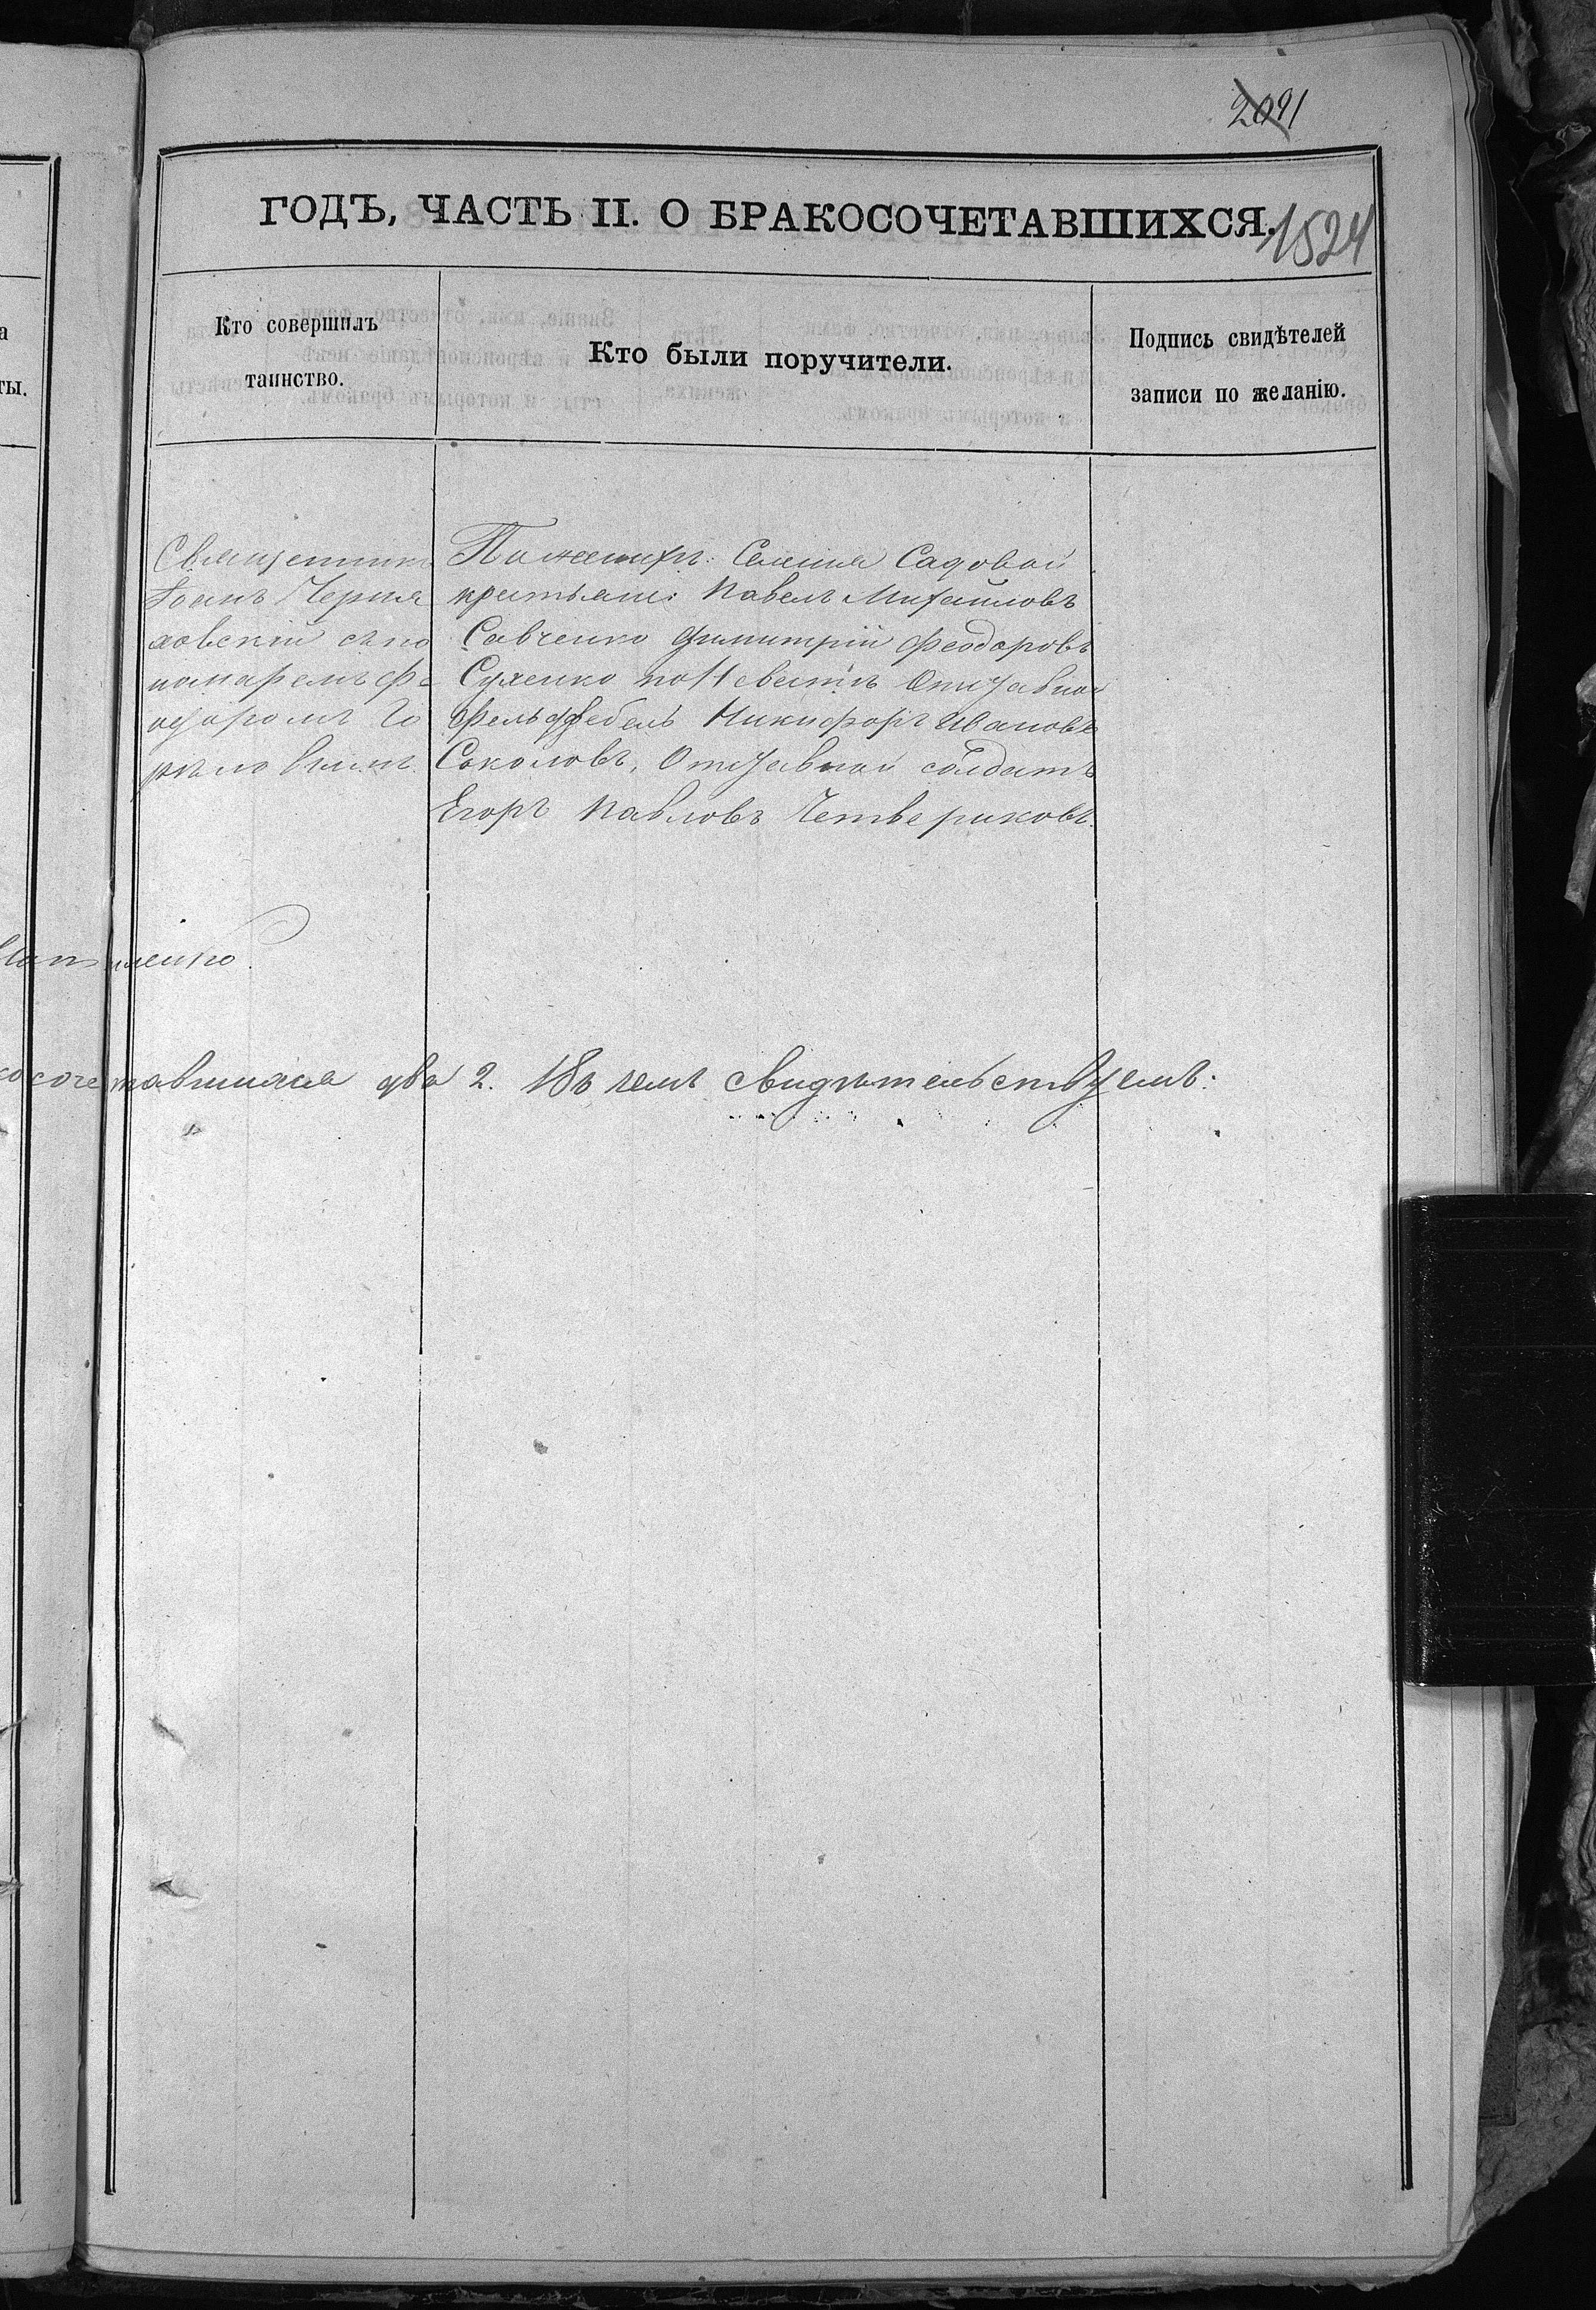 2091
ГОДЪ, ЧАСТЬ II. О БРАКОСОЧЕТАВШИХСЯ.
1524
Кто совершилъ
таинство.
Кто были поручители.
Подпись свидѣтелей
записи по желанію.
Священникъ
Іоанъ Черня
ховскій съ по
намаремъ Фе
одоромъ Го
По женихѣ: Селенія Садовой
крестьяне: Павелъ Михайловъ
Савченко Димитрій Феодоровъ
Суленко по Невестѣ Отставной
Фельдфебель Никифоръ Ивановъ
Соколовъ, Отставной солдатъ
Егоръ Павловъ Четвериковъ.
косочетавшихся два 2. Въ чемъ свидѣтельствуемъ: